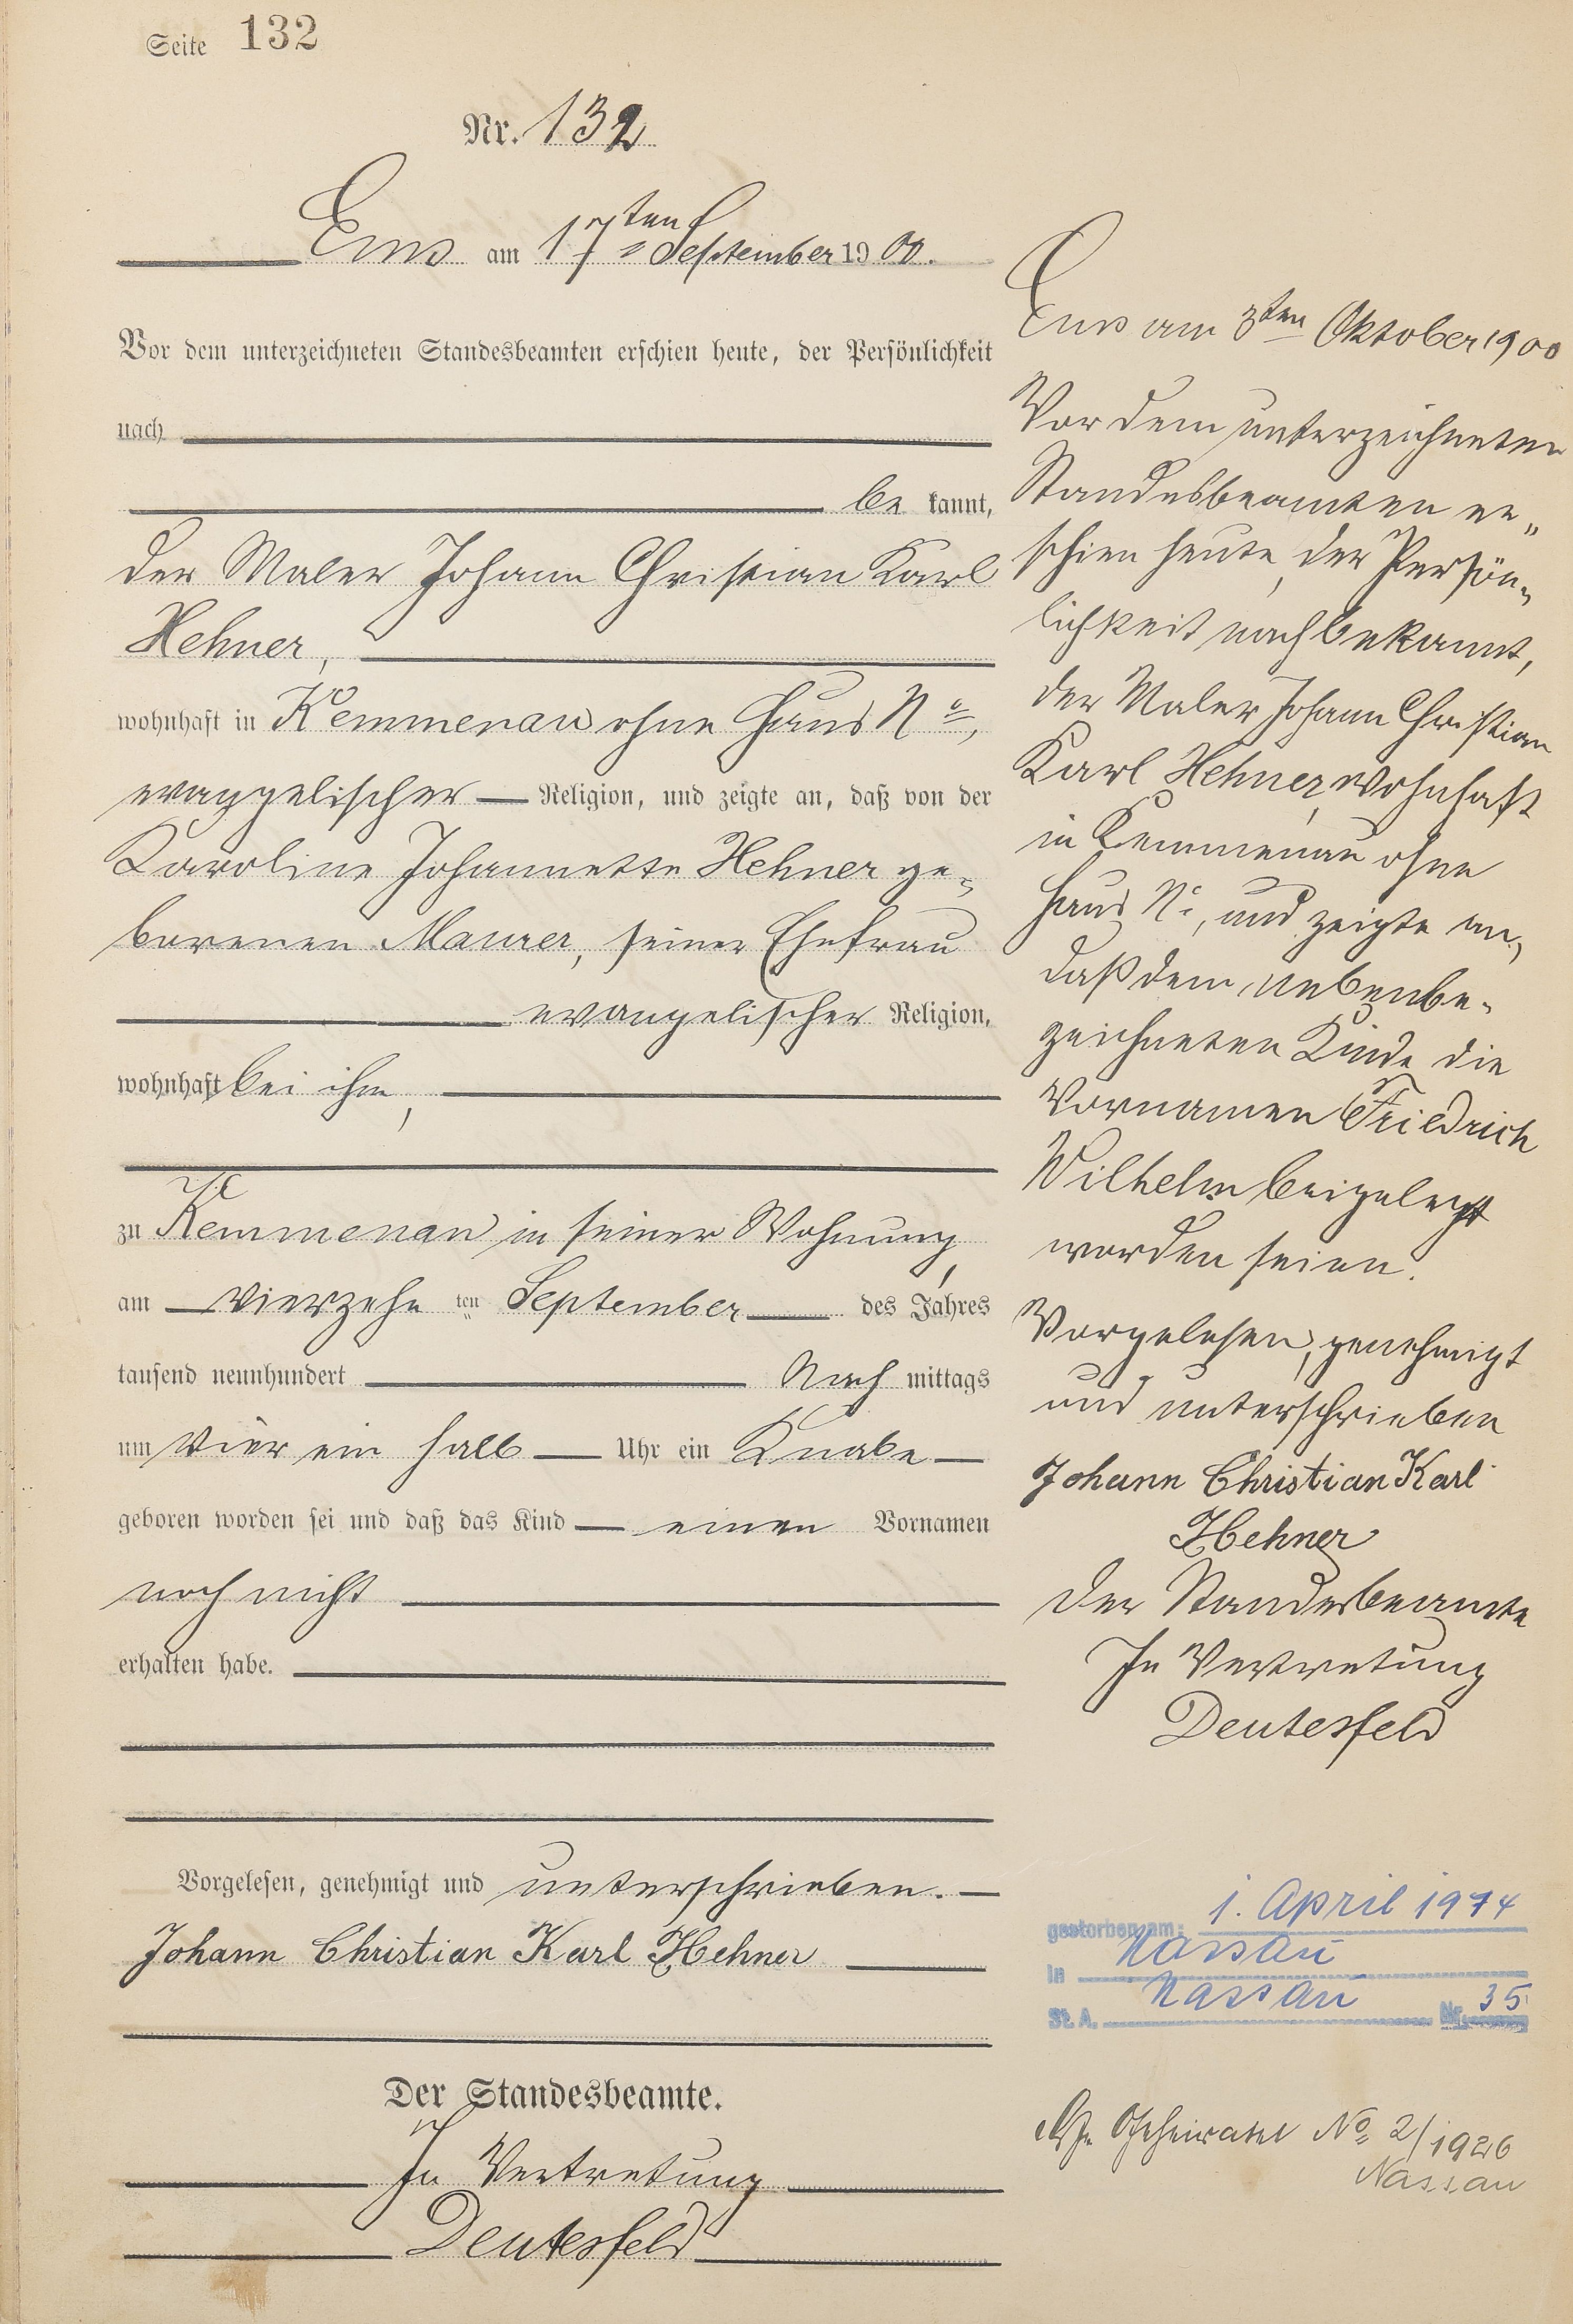 Seite 132
Nr. 132
Ems am 17ten September 1900.
Vor dem unterzeichneten Standesbeamten erschien heute, der Persönlichkeit
nach
be kannt,
der Maler Johann Christian Karl
Hehner,
wohnhaft in Kemmenau ohne Haus No,
evangelischer Religion, und zeigte an, daß von der
Karoline Johannette Hehner ge-
borenen Maurer, seiner Ehefrau
evangelischer Religion,
wohnhaft bei ihm,
zu Kemmenau in seiner Wohnung,
am vierzehn ten September des Jahres
tausend neunhundert Nach mittags
um vier ein halb Uhr ein Knabe
geboren worden sei und daß das Kind einen Vornamen
noch nicht
erhalten habe.
Vorgelesen, genehmigt und unterschrieben.
Johann Christian Karl Hehner
Der Standesbeamte.
In Vertretung
Deutesfeld
Ems am 3ten Oktober 1900
Vor dem unterzeichneten
Standesbeamten er-
schien heute, der Persön-
lichkeit nach bekannt,
der Maler Johann Christian
Karl Hehner, wohnhaft
in Kemmenau ohne
Haus No, und zeigte an,
daß dem nebenbe-
zeichneten Kinde die
Vornamen Friedrich
Wilhelm beigelegt
worden seien.
Vorgelesen, genehmigt
und unterschrieben
Johann Christian Karl
Hehner
Der Standesbeamte
In Vertretung
Deutesfeld
gestorben am: 1. April 1974
in Nassau
St. A. Nassau Nr. 35
No 2/1926
Nassau